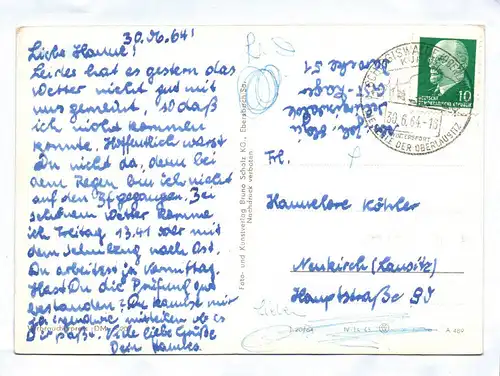 30.6.64!
Liebe Hanne!
Leider hat es gestern das
Wetter nicht gut mit
uns gemeint, so daß
ich nicht kommen
konnte. Hoffentlich warst
Du nicht da, denn bei
dem Regen bin ich nicht
auf den gegangen. Bei
schönem Wetter komme
ich Freitag 13.41 oder mit
dem Schulzug nach Ost.
Du arbeitest ja Vormittag.
Hast Du die Prüfung gut
bestanden? Du kannst mir
ja irgendwie mitteilen ob es
Dir paßt. Viele liebe Grüße
Dein
Verbraucherpreis DM
Foto- und Kunstverlag Bruno Scholz KG., Ebersbach Sa.
Nachdruck verboten
Abs.
Baracke 51
30.6.64-18
PERLE DER OBERLAUSITZ
DEUTSCHE
DEMOKRATISCHE REPUBLIK
10
Frl.
Hannelore Köhler
Neukirch (Lausitz)
Hauptstraße 95
A 469